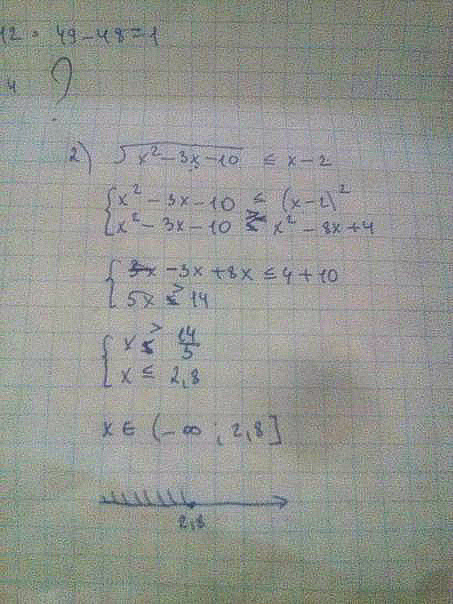 12 = 49-48=1
4
2) √x²-3x-10 ≤ x-2
{ x²-3x-10 ≤ (x-2)²
x²-3x-10 ≥ x²-8x+4
{ -3x+8x ≤ 4+10
5x > 14
{ x > 14/5
x ≤ 2,8
x ∈ (-∞ ; 2,8]
2,8